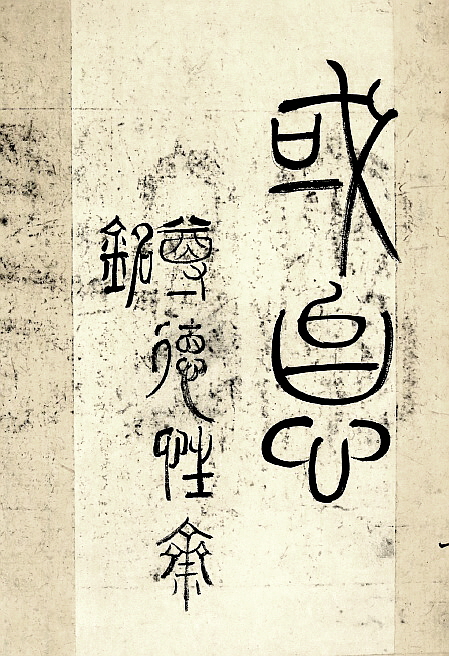 或
尊德性齋
銘